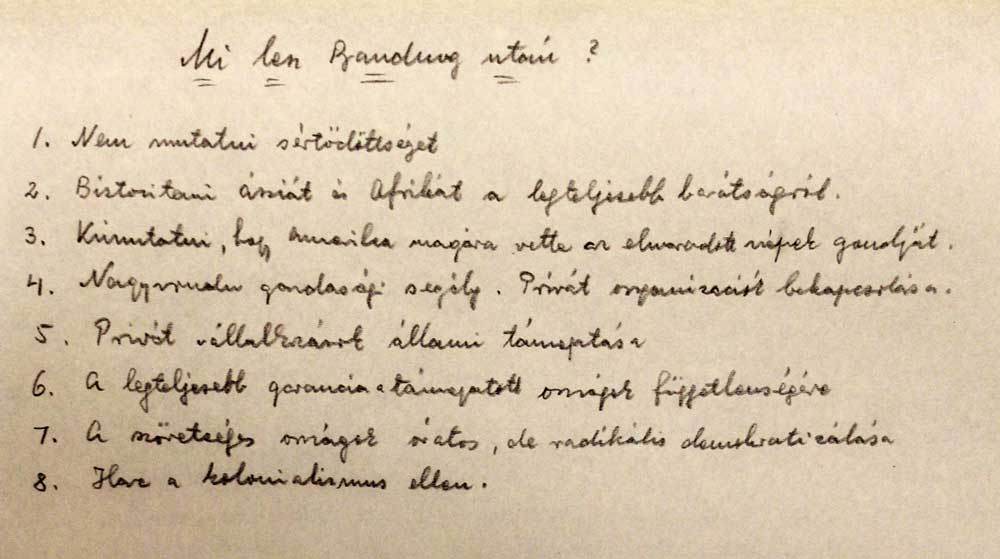 Mi lesz Bandung után?
1. Nem mutatni sértődöttséget
2. Biztositani Ázsiát és Afrikát a legteljesebb barátságról.
3. Kimutatni, hogy Amerika magára vette az elmaradott népek gondját.
4. Nagyvonalu gazdasági segély. Privát organizációk bekapcsolása.
5. Privát vállalkozások állami támogatása
6. A legteljesebb garancia a támogatott országok függetlenségére
7. A szövetséges országok óvatos, de radikális demokratizálása
8. Harc a kolonializmus ellen.